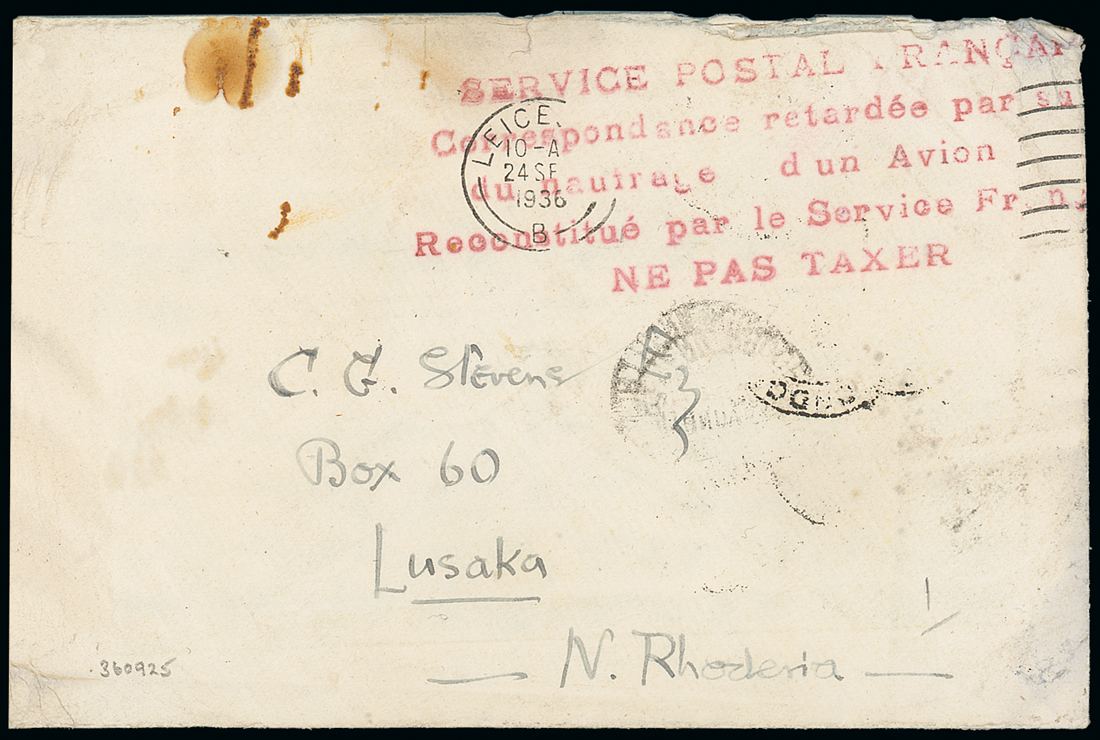 SERVICE POSTAL FRANÇAI
Correspondance retardée par su
du naufrage d'un Avion
Reconstitué par le Service Franç
NE PAS TAXER
LEICE
10-A
24 SE
1936
B
C. G. Stevens
Box 60
Lusaka
N. Rhodesia
360925